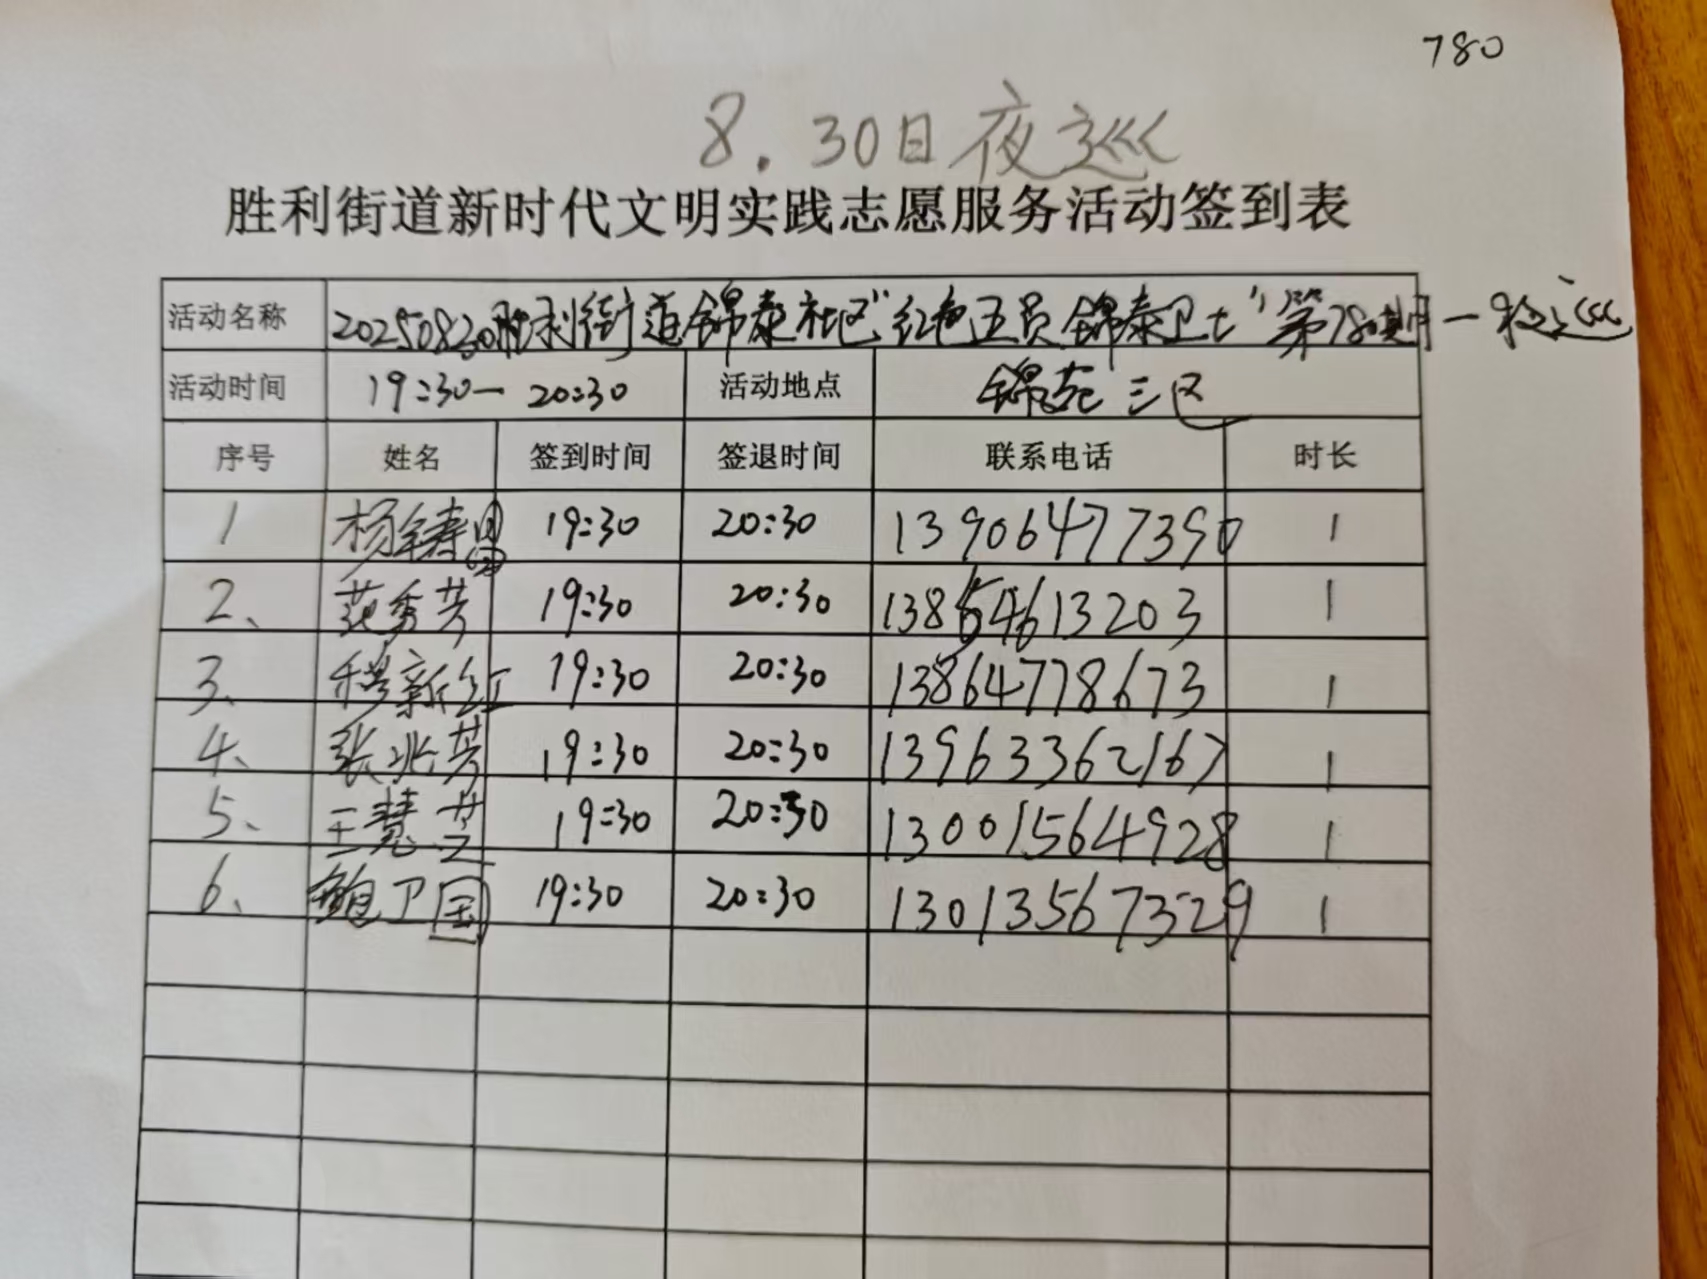 780
8.30日夜巡
胜利街道新时代文明实践志愿服务活动签到表
活动名称 20250830胜利街道锦泰社区"红色五员 锦泰卫士"第780期一夜巡
活动时间 19:30—20:30 活动地点 锦苑三区
序号 姓名 签到时间 签退时间 联系电话 时长
1 杨 19:30 20:30 13906477390 1
2、 范秀芳 19:30 20:30 13854613203 1
3、 穆新红 19:30 20:30 13864778673 1
4、 张兆芳 19:30 20:30 13963362167 1
5、 王慧芝 19:30 20:30 13001564928 1
6、 鲍卫国 19:30 20:30 13013567329 1